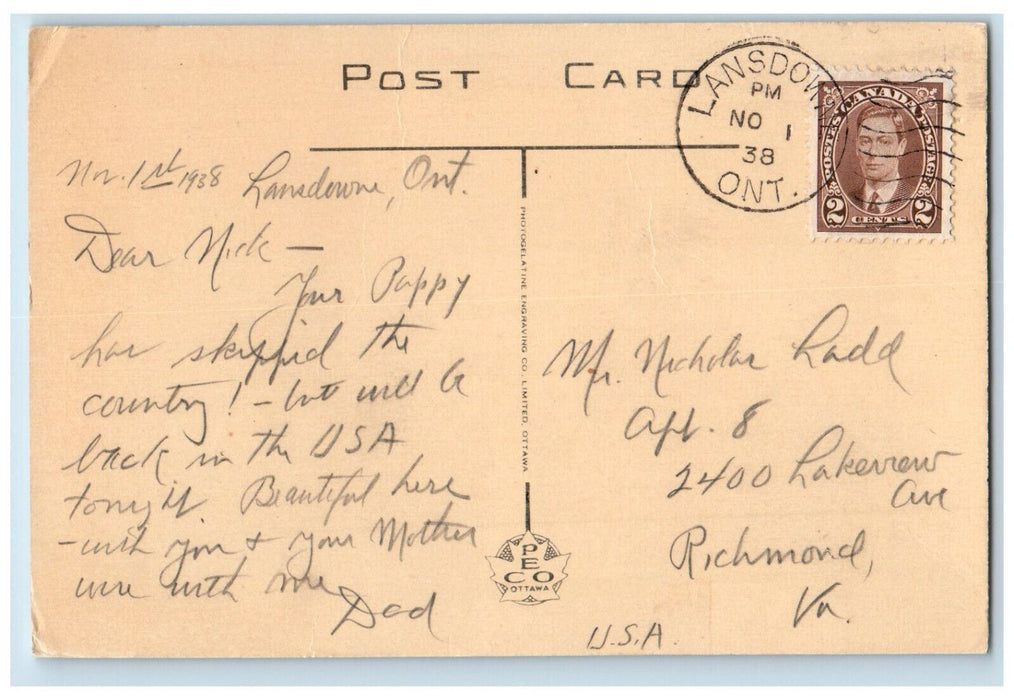 POST CARD
LANSDOWNE
PM
NO 1
38
ONT.
POSTES CANADA POSTAGE
2 CENTS 2
Nov. 1st 1938 Lansdowne, Ont.
Dear Nick —
Your Pappy
has skipped the
country! - but will be
back in the USA
tonight Beautiful here
- wish you & your Mother
were with me
Dad
PHOTOGELATINE ENGRAVING CO. LIMITED, OTTAWA
PECO
OTTAWA
Mr. Nicholas Ladd
Apt. 8
2400 Lakeview
Ave
Richmond,
Va.
U.S.A.